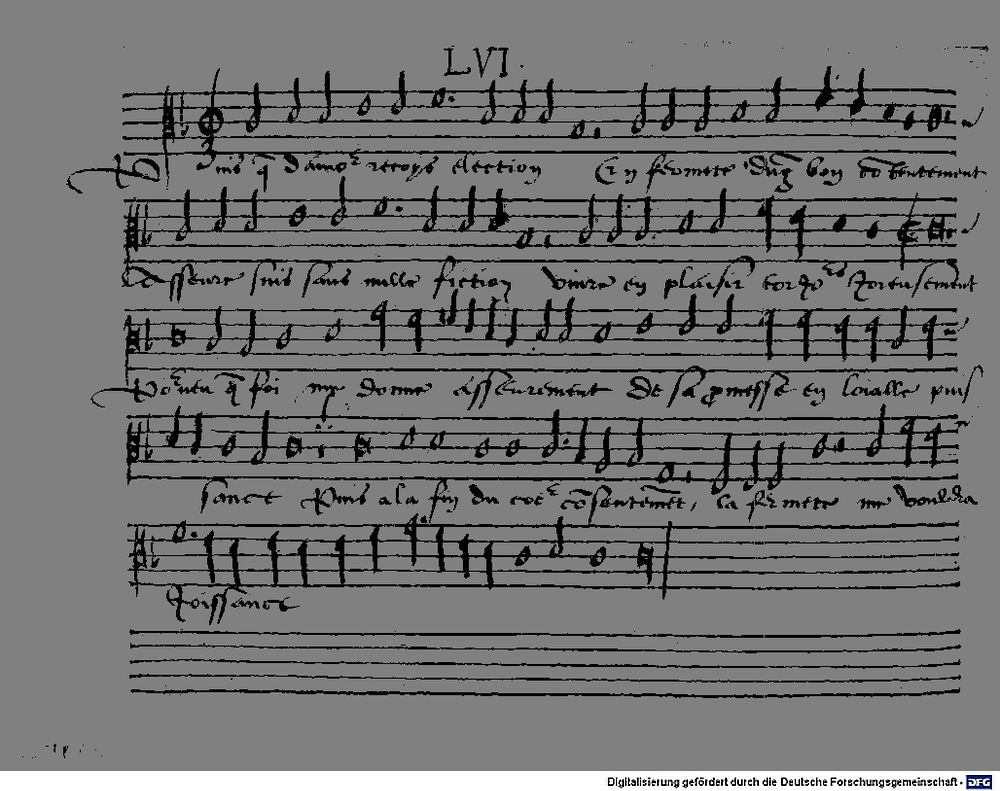 LVI.
Puis q̃ d'amor recoys election En fermete dug bon cōtentement
Asseure suis sans nulle fiction vivre en plaisir
Porveu q̃ foi me donne asseurement De sa pmesse en loialle puis
sance Puis a la fin du coer cōsentemēt, la fermete me vouldra
Joissance
Digitalisierung gefördert durch die Deutsche Forschungsgemeinschaft - DFG